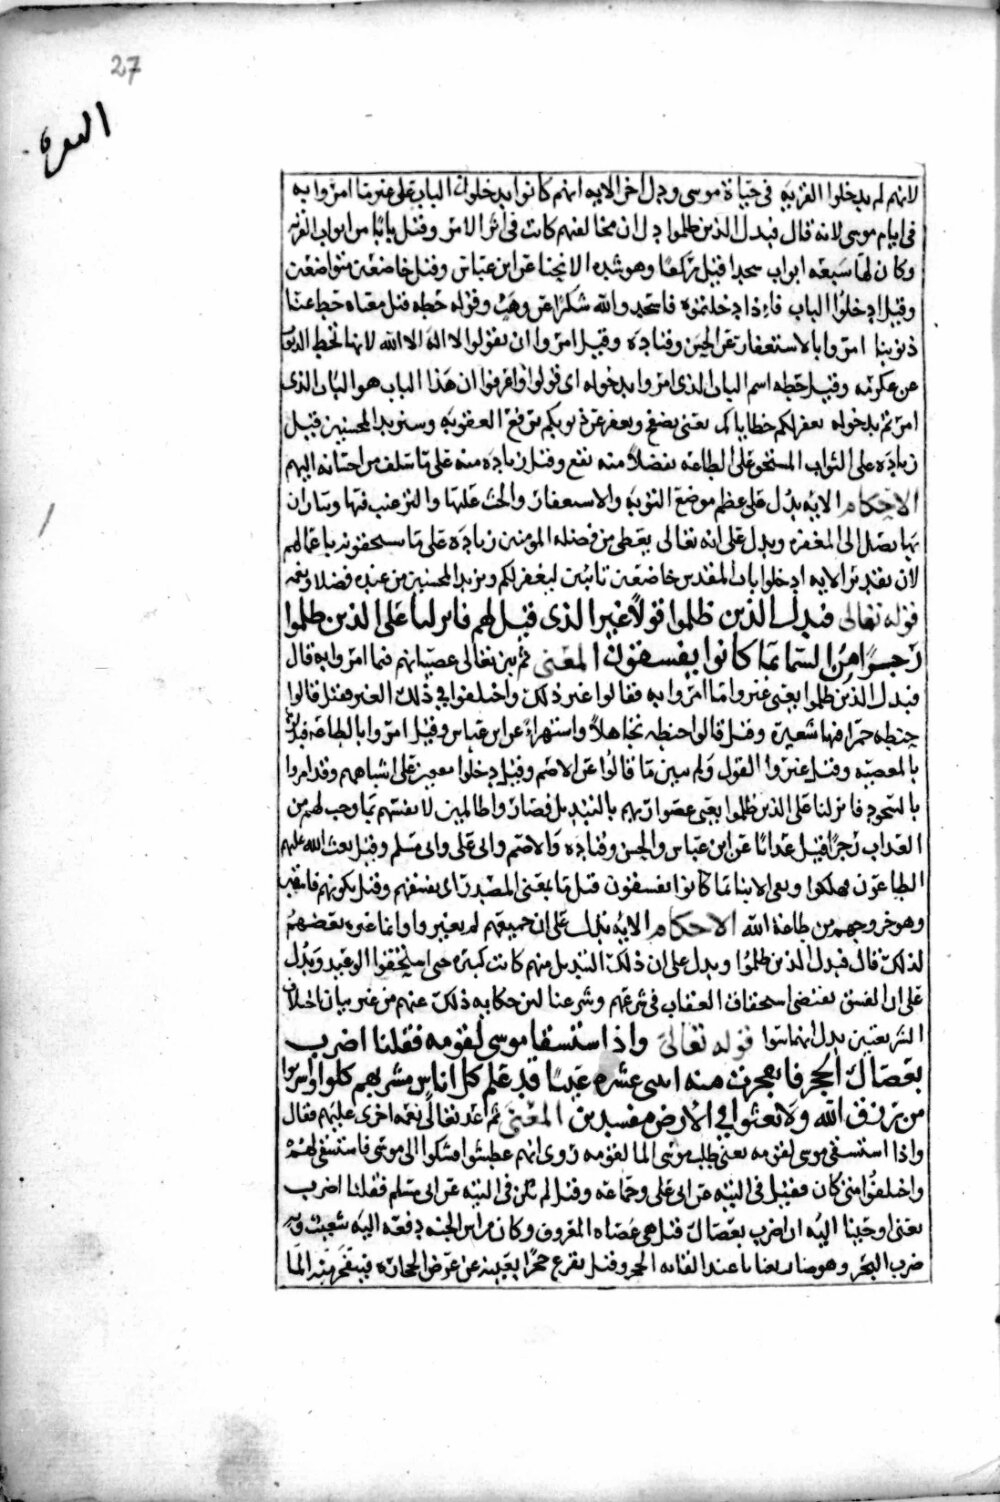 27
البقرة
لانهم لم يدخلوا القرية في حياة موسى ودل اخر الاية انهم كانوا يدخلون الباب على غير ما امروا به
في ايام موسى لانه قال فبدل الذين ظلموا دل ان مخالفتهم كانت في اثر الامر وقيل بابا من ابواب القرية
وكان لها سبعة ابواب سجدا قيل ركعا وهو شدة الانحنا عن ابن عباس وقيل خاضعين متواضعين
وقيل ادخلوا الباب فاذا دخلتموه فاسجدوا لله شكرا عن وهب وقوله حطة قيل معناه حط عنا
ذنوبنا امروا بالاستغفار عن الحسن وقتادة وقيل امروا ان يقولوا لا اله الا الله لانها تحط الذنوب
عن عكرمة وقيل حطة اسم الباب الذي امروا بدخوله اي قولوا واعرفوا ان هذا الباب هو الباب الذي
امرتم بدخوله نغفر لكم خطاياكم يعني نصفح ونعفو عن ذنوبكم برفع العقوبة وسنزيد المحسنين قيل
زيادة على الثواب المستحق على الطاعة تفضلا منه نفع وقيل زيادة منه على ما سلف من احسانه اليهم
الاحكام الاية يدل على عظم موضع التوبة والاستغفار والحث عليها والترغيب فيها وبيان ان
بها يصل الى المغفرة ويدل على انه تعالى يعطي من فضله المومنين زيادة على ما يستحقونه باعمالهم
لان تقدير الاية ادخلوا باب المقدس خاضعين تائبين ليغفر لكم ويزيد المحسنين من عنده فضلا ونعمة
قوله تعالى فبدل الذين ظلموا قولا غير الذي قيل لهم فانزلنا على الذين ظلموا
رجزا من السما بما كانوا يفسقون المعنى ثم بين تعالى عصيانهم فيما امروا به فقال
فبدل الذين ظلموا يعني غيروا ما امروا به فقالوا غير ذلك واختلفوا في ذلك الغير فقيل قالوا
حنطة حمرا فيها شعيرة وقيل قالوا حنطة تجاهلا واستهزاء عن ابن عباس وقيل امروا بالطاعة فبدلوا
بالمعصية وقيل غيروا القول ولم يبين ما قالوا عن الاصم وقيل دخلوا على اشباههم وقد امروا
بالسجود فانزلنا على الذين ظلموا يعني عصوا ربهم بالتبديل فصاروا ظالمين لانفسهم بما وجب لهم من
العذاب رجزا قيل عذابا عن ابن عباس والحسن وقتادة والاصم وابي علي وابي مسلم وقيل بعث الله عليهم
الطاعون فهلكوا وبقي الابنا بما كانوا يفسقون قيل ما بمعنى المصدر اي بفسقهم وقيل بكونهم فاسقين
وهو خروجهم من طاعة الله الاحكام الاية تدل على ان جميعهم لم يغيروا وانما غيره بعضهم
لذلك قال فبدل الذين ظلموا ويدل على ان ذلك التبديل منهم كانت كبيرة حتى استحقوا الوعيد ويدل
على ان الفسق يقتضي استحقاق العقاب في شرعهم وشرعنا لان حكاية ذلك عنهم من غير بيان اختلاف
الشريعتين يدل انهما سوا قوله تعالى واذ استسقا موسى لقومه فقلنا اضرب
بعصاك الحجر فانفجرت منه اثنى عشرة عينا قد علم كل اناس مشربهم كلوا واشربوا
من رزق الله ولا تعثوا في الارض مفسدين المعنى ثم عد تعالى نعمة اخرى عليهم فقال
واذا استسقى موسى لقومه يعني طلب موسى الما لقومه روي انهم عطشوا فشكوا الى موسى فاستسقى لهم
واختلفوا متى كان فقيل في التيه عن ابي علي وجماعة وقيل لم يكن في التيه عن ابي مسلم فقلنا اضرب
يعني اوحينا اليه ان اضرب بعصاك قيل هي عصاه المعروف وكان من اس الجنة دفعه اليه شعيب وبه
ضرب البحر وهو صار ثعبانا عند القائه الحجر وقيل يقرع حجرا بعينه عن عرض الحجارة فينفجر منه الما